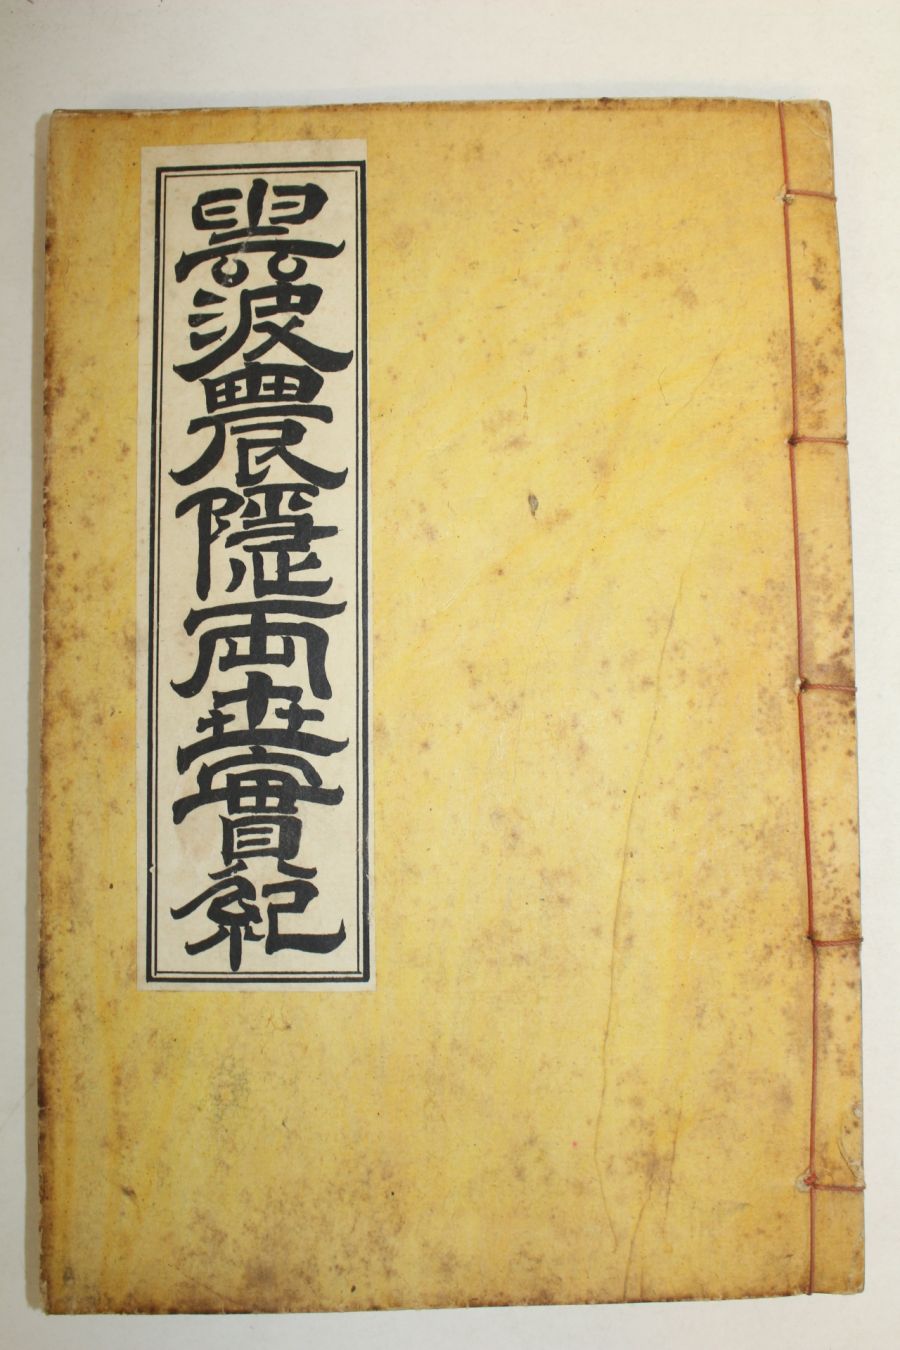 雲波農隱兩世實紀